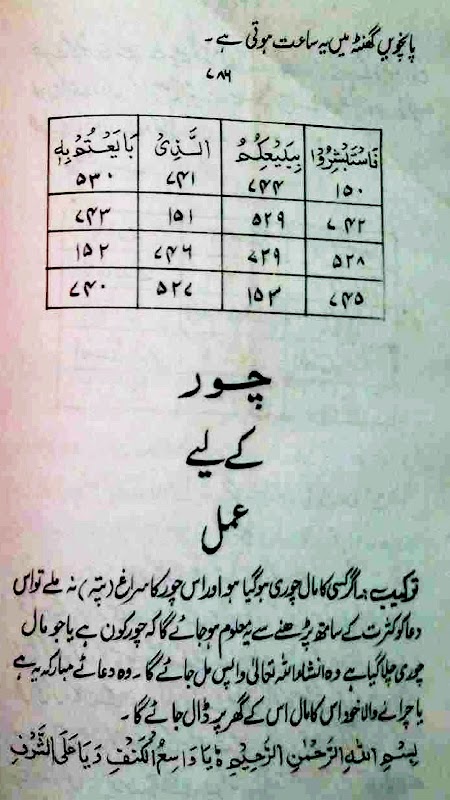 پانچویں گھنٹہ میں یہ ساعت ہوتی ہے ۔
۷۸۶
فَاسْتَبْشِرُوْا بِبَيْعِكُمُ الَّذِىْ بَايَعْتُمْ بِهٖ
۱۵۰ ۷۴۴ ۷۴۱ ۵۳۰
۷۴۲ ۵۲۹ ۱۵۱ ۷۴۳
۵۲۸ ۷۳۹ ۷۴۶ ۱۵۲
۷۴۵ ۱۵۳ ۵۲۷ ۷۴۰
چور
کے لیے
عمل
ترکیب :۔ اگر کسی کا مال چوری ہو گیا ہو اور اس چور کا سراغ (پتہ) نہ ملے تو اس
دعا کو کثرت کے ساتھ پڑھنے سے یہ معلوم ہو جائے گا کہ چور کون ہے یا جو مال
چوری چلا گیا ہے وہ انشاء اللہ تعالیٰ واپس مل جائے گا ۔ وہ دعائے مبارکہ یہ ہے
یا چرانے والا خود اس کا مال اس کے گھر پر ڈال جائے گا ۔
بِسْمِ اللهِ الرَّحْمٰنِ الرَّحِيْمِ ہ يَا وَاسِعُ الْكَنَفِ وَ يَا عَلَى الشَّرَفِ